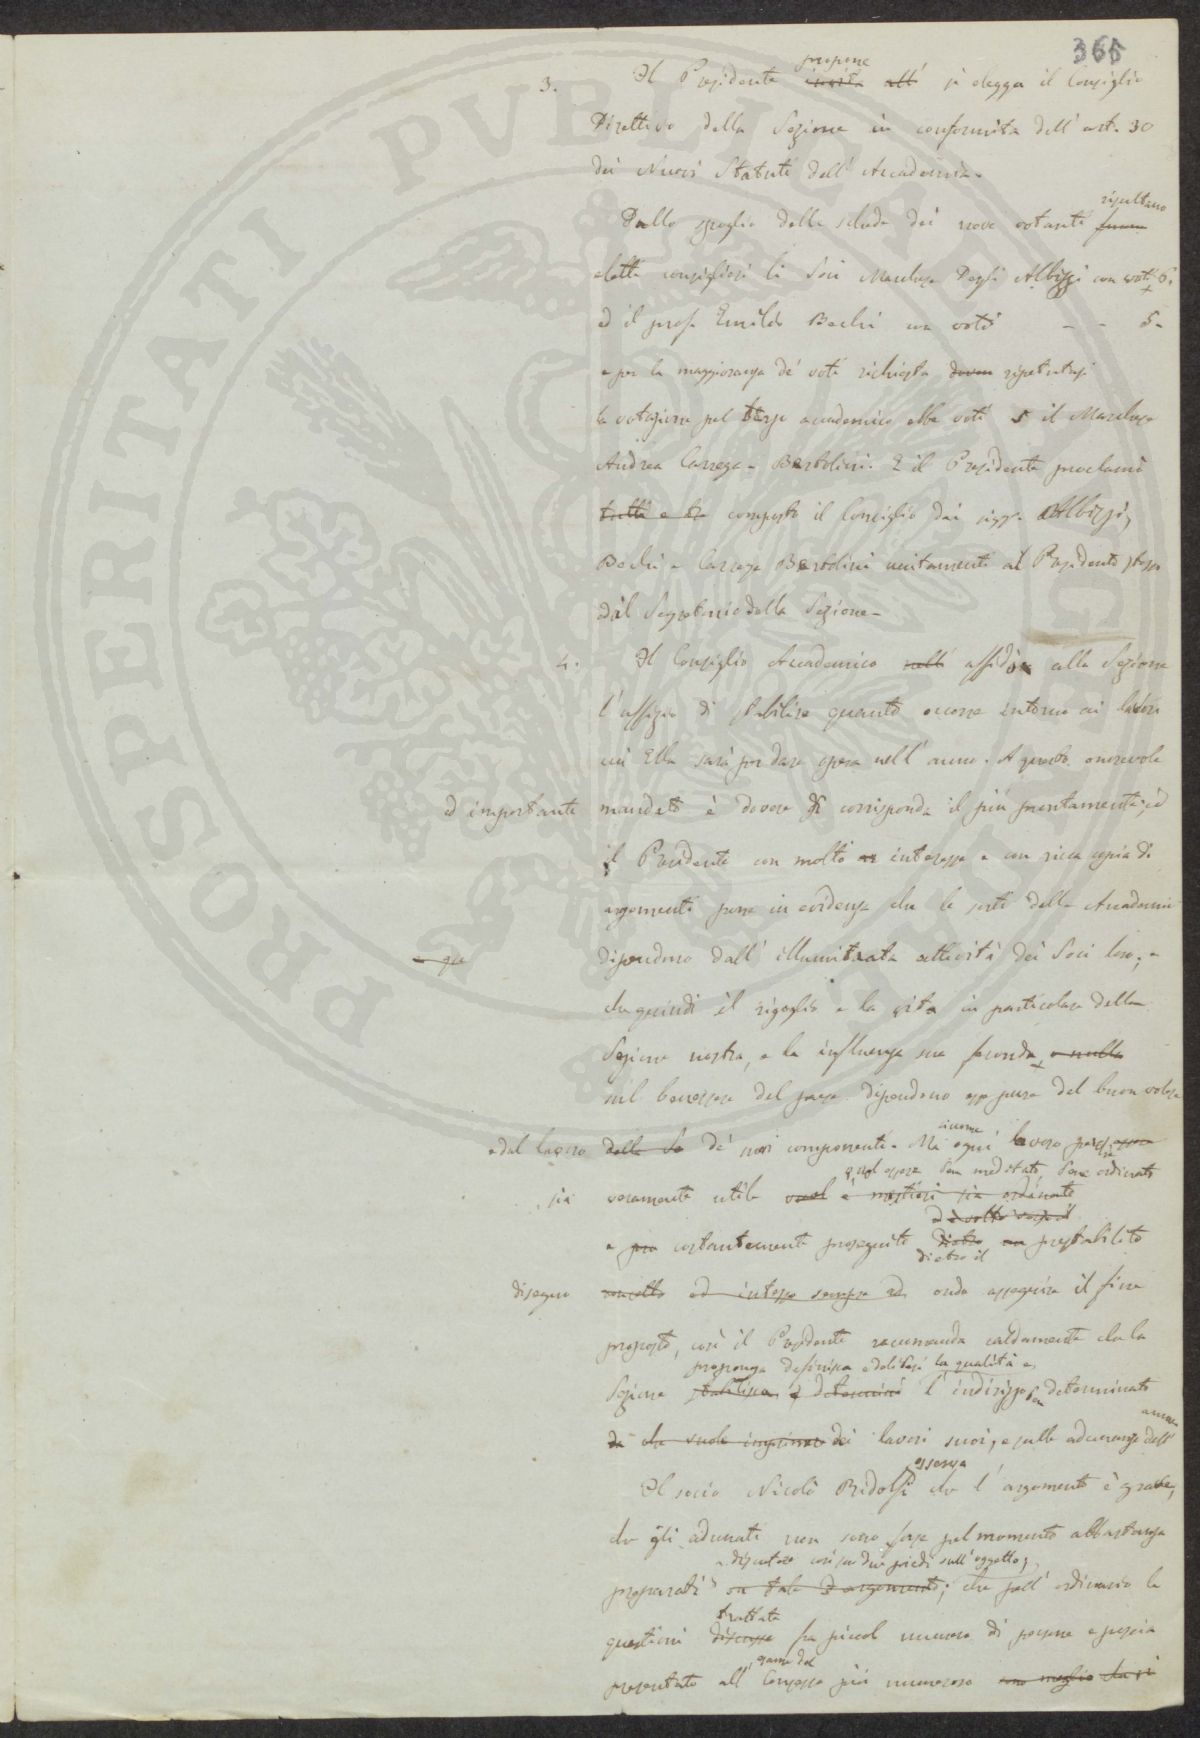 365
3. Il Presidente propone invita all' si elegga il Consiglio
Direttivo della Sezione in conformità dell' art. 30
dei Nuovi Statuti dell' Accademia.
Dallo spoglio delle schede dei nove votanti furono risultano
eletti consiglieri li Soci Marchese Degli Albizzi con voti 6.
ed il prof. Emilio Bechi con voti - - 5-
e per la maggioranza de' voti richiesta ripetutasi
la votazione pel terzo accademico ebbe voti 5 il Marchese
Andrea Carrega-Bertolini. E il Presidente proclamò
tutti e tre composto il Consiglio dai sigg. Albizzi,
Bechi e Carrega Bertolini unitamente al Presidente stesso
ed al Segretario della Sezione-
4. Il Consiglio Accademico nell' affidò alla Sezione
l' uffizio di stabilire quanto occorre intorno ai lavori
cui Ella sarà per dare opera nell' anno. A questo onorevole
ed importante mandato è dovere si corrisponda il più prontamente; ed
il Presidente con molto interesse e con ricca copia di
argomenti pone in evidenza che le sorti della Accademia
dipendono dall' illuminata attività dei Soci loro; e
che quindi il rigoglio e la vita in particolare della
Sezione nostra, e la influenza sua feconda, e nulla
sul benessere del paese dipendono eppure del buon volere
e dal lavoro della Se de' suoi componenti. Ma siccome ogni lavoro perchè
sia veramente utile vuol essere ben meditato, bene ordinato
è mestieri sia ordinato
e costantemente proseguito dietro il prestabilito
disegno concetto ed inteso sempre ad onde asseguire il fine
proposto, così il Presidente raccomanda caldamente che la
proponga definisca e deliberi la qualità e
Sezione stabilisca e determini l' indirizzo ben determinato
che vuole imprimere dei lavori suoi, e sulle adunanze dell' annata
Il socio Nicolò Ridolfi osserva che l' argomento è grave,
che gli adunati non sono forse pel momento abbastanza
a discutere così su due piedi sull' oggetto;
preparati su tale argomento; che pell' ordinario le
questioni discusse trattate fra piccol numero di persone e poscia
presentate all' esame del Consesso più numeroso